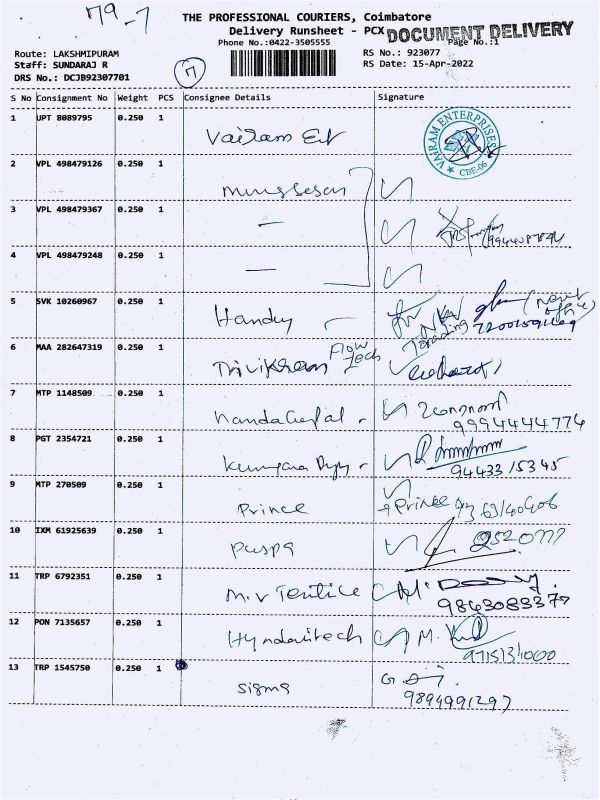 79-7
THE PROFESSIONAL COURIERS, Coimbatore
Delivery Runsheet - PCX
DOCUMENT DELIVERY
Phone No.:0422-3505555
Page No.:1
Route: LAKSHMIPURAM
RS No.: 923077
Staff: SUNDARAJ R
7
RS Date: 15-Apr-2022
DRS No.: DCJB92307701
S No Consignment No Weight PCS Consignee Details Signature
1 UPT 8089795 0.250 1 Vairam Ent
VAIRAM ENTERPRISES CBE-06
2 VPL 498479126 0.250 1
3 VPL 498479367 0.250 1 —
4 VPL 498479248 0.250 1 —
5 SVK 10260967 0.250 1 Handy
Trading
6 MAA 282647319 0.250 1 Trivikram Flow tech
7 MTP 1148509 0.250 1 nandaGopal
9994444774
8 PGT 2354721 0.250 1
94433 15345
9 MTP 270509 0.250 1 Prince
Prince
10 IXM 61925639 0.250 1 puspa
11 TRP 6792351 0.250 1 M.V Textile
9843083377
12 PON 7135657 0.250 1
9715131000
13 TRP 1545750 0.250 1 sigma
9894991297